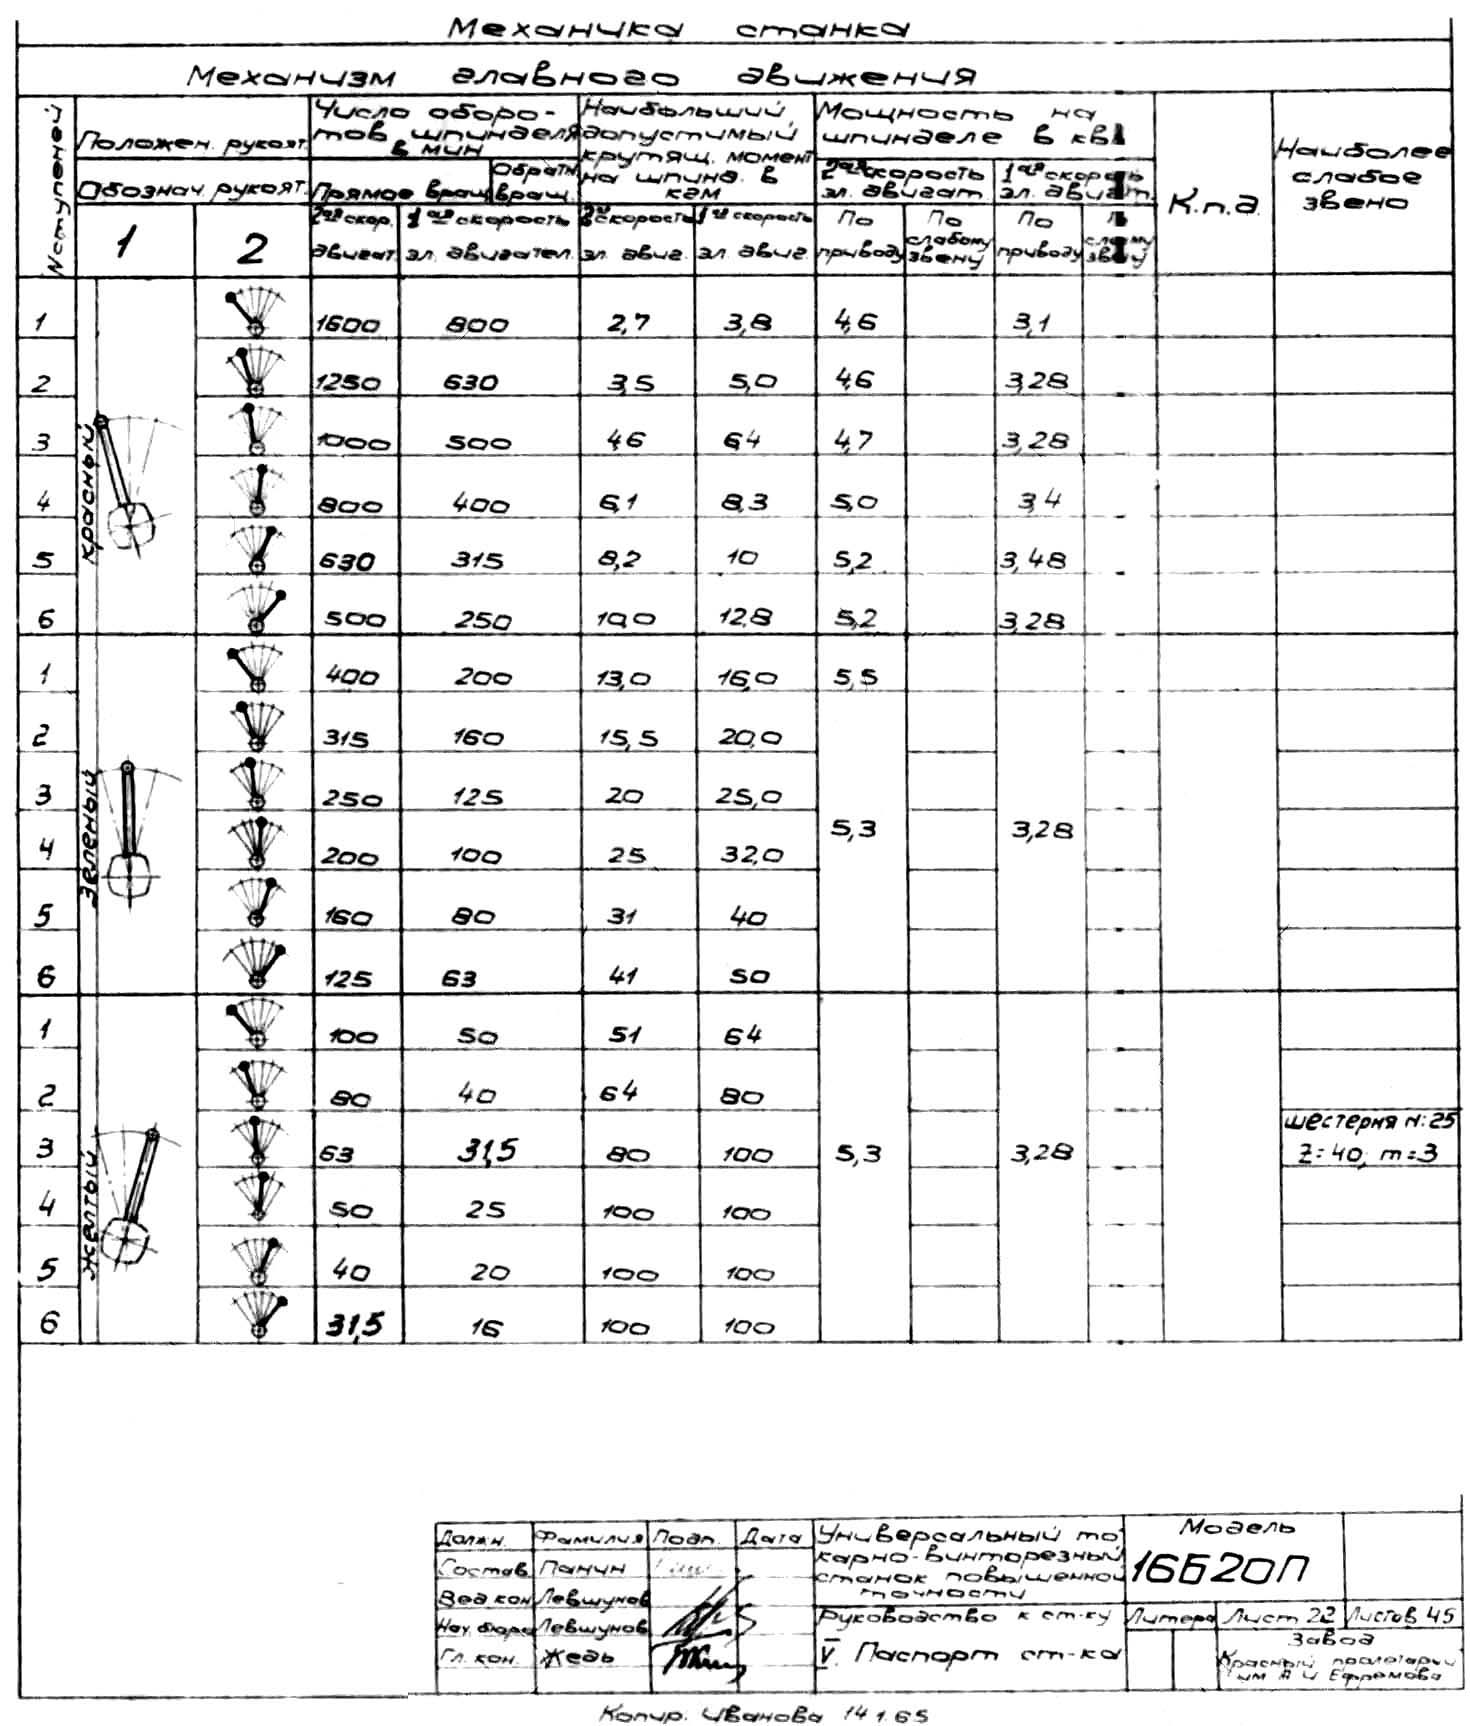 Механика станка
Механизм главного движения
№ ступеней
Положен. рукоят.
Обознач. рукоят.
1 2
Число оборо-
тов шпинделя
в мин
Прямое вращ.
Обратн.
вращ.
2ая скор.
двигат.
1ая скорость
эл. двигател.
Наибольший
допустимый
крутящ. момент
на шпинд. в
кгм
2ая скорость
эл. двиг.
1ая скорость
эл. двиг.
Мощность на
шпинделе в кв
2ая скорость
эл. двигат.
1ая скорость
эл. двигат.
По
приводу
По
слабому
звену
По
приводу
К.п.д.
Наиболее
слабое
звено
Красный
1 1600 800 2,7 3,8 4,6 3,1
2 1250 630 3,5 5,0 4,6 3,28
3 1000 500 4,6 6,4 4,7 3,28
4 800 400 6,1 8,3 5,0 3,4
5 630 315 8,2 10 5,2 3,48
6 500 250 10,0 12,8 5,2 3,28
Зеленый
1 400 200 13,0 16,0 5,5
2 315 160 15,5 20,0
3 250 125 20 25,0
5,3 3,28
4 200 100 25 32,0
5 160 80 31 40
6 125 63 41 50
Желтый
1 100 50 51 64
2 80 40 64 80
шестерня N:25
3 63 31,5 80 100 5,3 3,28 Z=40, m=3
4 50 25 100 100
5 40 20 100 100
6 31,5 16 100 100
Должн. Фамилия Подп. Дата
Состав. Панин
Вед кон Левшунов
Нач. бюро Левшунов
Гл. кон. Жедь
Универсальный то-
карно-винторезный
станок повышенной
точности
Руководство к ст-ку
V. Паспорт ст-ка
Модель
16Б20П
Литера Лист 22 Листов 45
Завод
Красный пролетарий
им А И Ефремова
Копир. Иванова 14 1.65